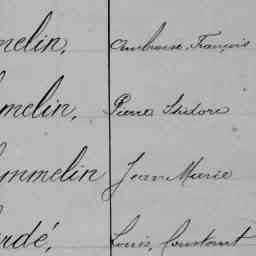 melin, Ambroise, François
melin, Pierre Isidore
mmelin Jean Marie
ardé, Louis, Constant